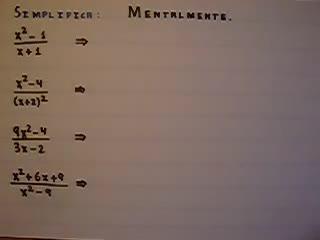 SIMPLIFICA: MENTALMENTE.
x²-1/x+1 ⇒
x²-4/(x+2)² ⇒
9x²-4/3x-2 ⇒
x²+6x+9/x²-9 ⇒